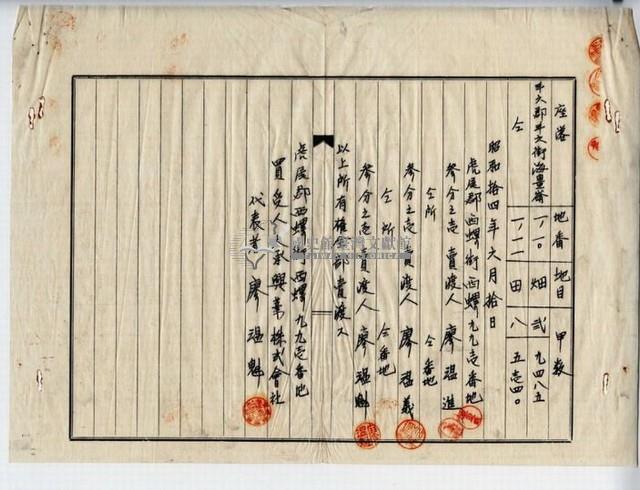 座落 地番 地目 甲数
斗六郡斗六街海豊崙 一一〇 畑 弐 九四八五
仝 一一一 田 八 五壱四〇
昭和拾四年六月拾日
虎尾郡西螺街西螺九九壱番地
参分之壱賣渡人 廖温進
仝所 仝番地
参分之壱賣渡人 廖温義
仝所 仝番地
参分之壱賣渡人 廖温魁
以上所有權全部賣渡ス
虎尾郡西螺街西螺九九壱番地
買受人 承興業株式會社
代表者 廖温魁